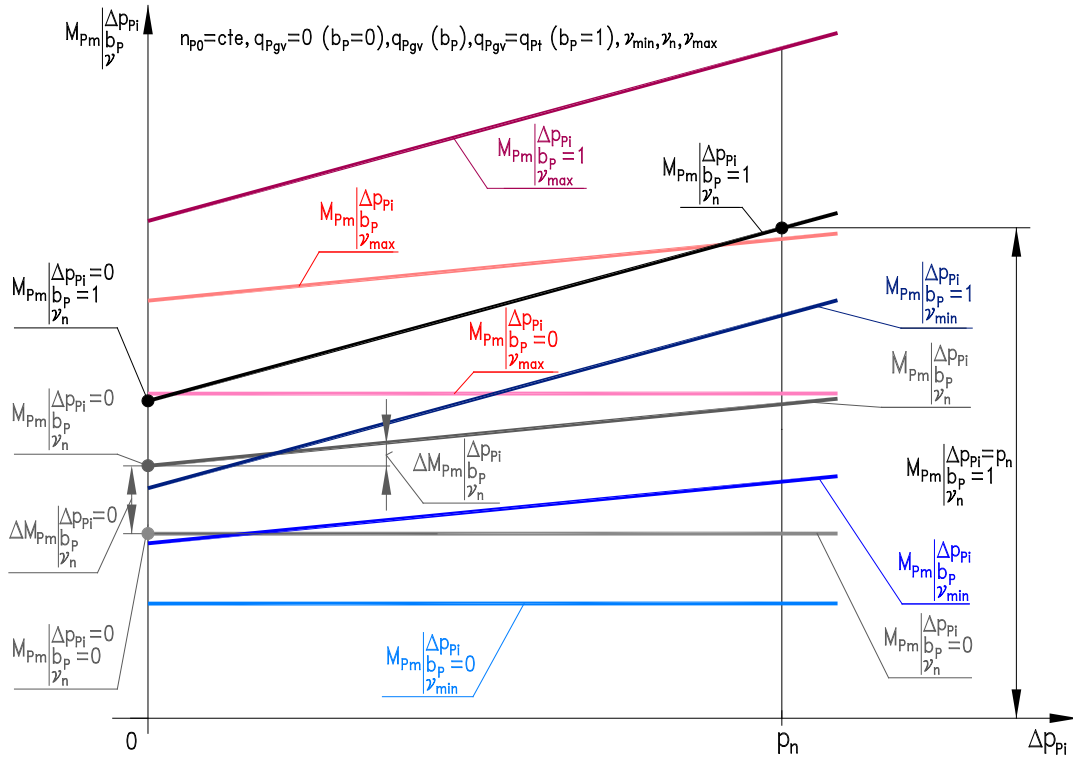 M_Pm|Δp_Pi
b_P
ν
n_P0=cte, q_Pgv=0 (b_P=0), q_Pgv (b_P), q_Pgv=q_Pt (b_P=1), ν_min, ν_n, ν_max
M_Pm|Δp_Pi
b_P=1
ν_max
M_Pm|Δp_Pi
b_P=1
ν_n
M_Pm|Δp_Pi
b_P
ν_max
M_Pm|Δp_Pi=0
b_P=1
ν_n
M_Pm|Δp_Pi
b_P=1
ν_min
M_Pm|Δp_Pi
b_P=0
ν_max
M_Pm|Δp_Pi
b_P
ν_n
M_Pm|Δp_Pi=0
b_P
ν_n
ΔM_Pm|Δp_Pi
b_P
ν_n
M_Pm|Δp_Pi=p_n
b_P=1
ν_n
ΔM_Pm|Δp_Pi=0
b_P
ν_n
M_Pm|Δp_Pi
b_P
ν_min
M_Pm|Δp_Pi=0
b_P=0
ν_n
M_Pm|Δp_Pi
b_P=0
ν_min
M_Pm|Δp_Pi
b_P=0
ν_n
0
p_n
Δp_Pi